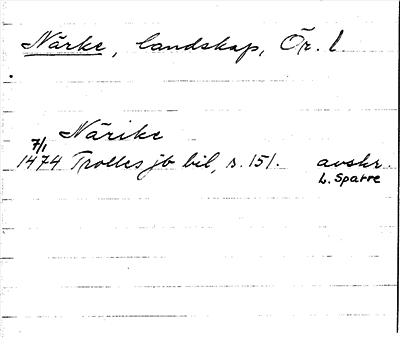 Närke, landskap, Ör. l.
Närike
7/1
1474 Trolles jb bil, s. 151. avskr.
L. Sparre